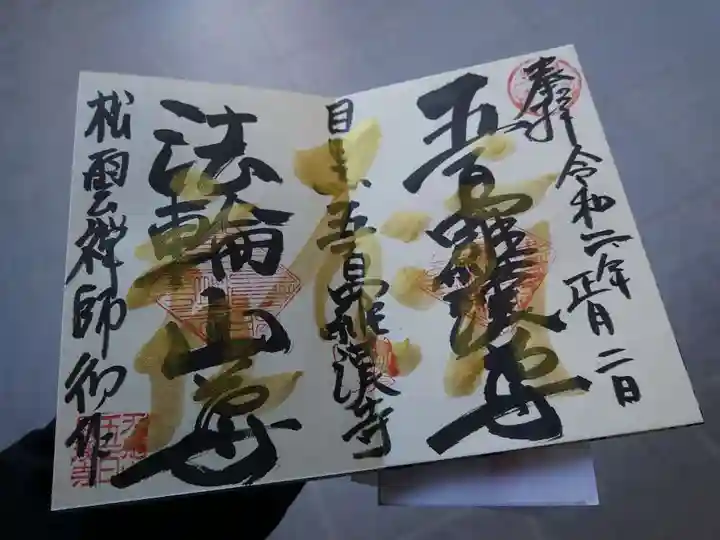 奉拝
令和二年正月二日
五百羅漢尊
目黒五百羅漢寺
法輪山尊
松雲禅師御作